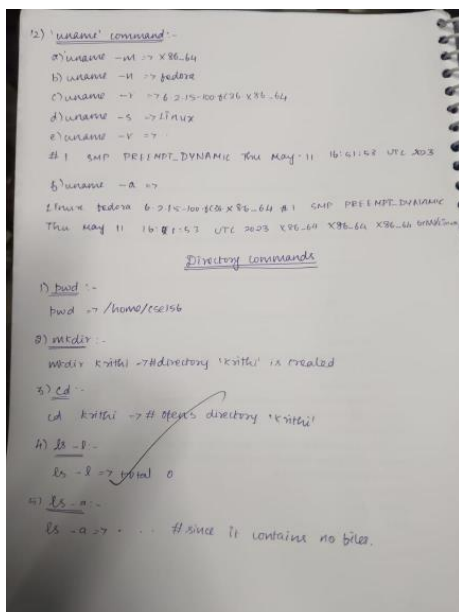 12) 'uname' command:-
a) uname -m => x86_64
b) uname -n => fedora
c) uname -r => 6.2.15-100.fc36 x86_64
d) uname -s => Linux
e) uname -v =>
#1 SMP PREEMPT_DYNAMIC Thu May 11 16:51:53 UTC 2023
f) uname -a =>
Linux fedora 6.2.15-100.fc36 x86_64 #1 SMP PREEMPT_DYNAMIC
Thu May 11 16:51:53 UTC 2023 x86_64 x86_64 x86_64 GNU/Linux
Directory commands
1) pwd :-
pwd => /home/cse156
2) mkdir :-
mkdir Krithi -> #directory 'Krithi' is created
3) cd :-
cd Krithi -> # opens directory 'Krithi'
4) ls -l :-
ls -l => total 0
5) ls -a :-
ls -a => . .. # since it contains no files.